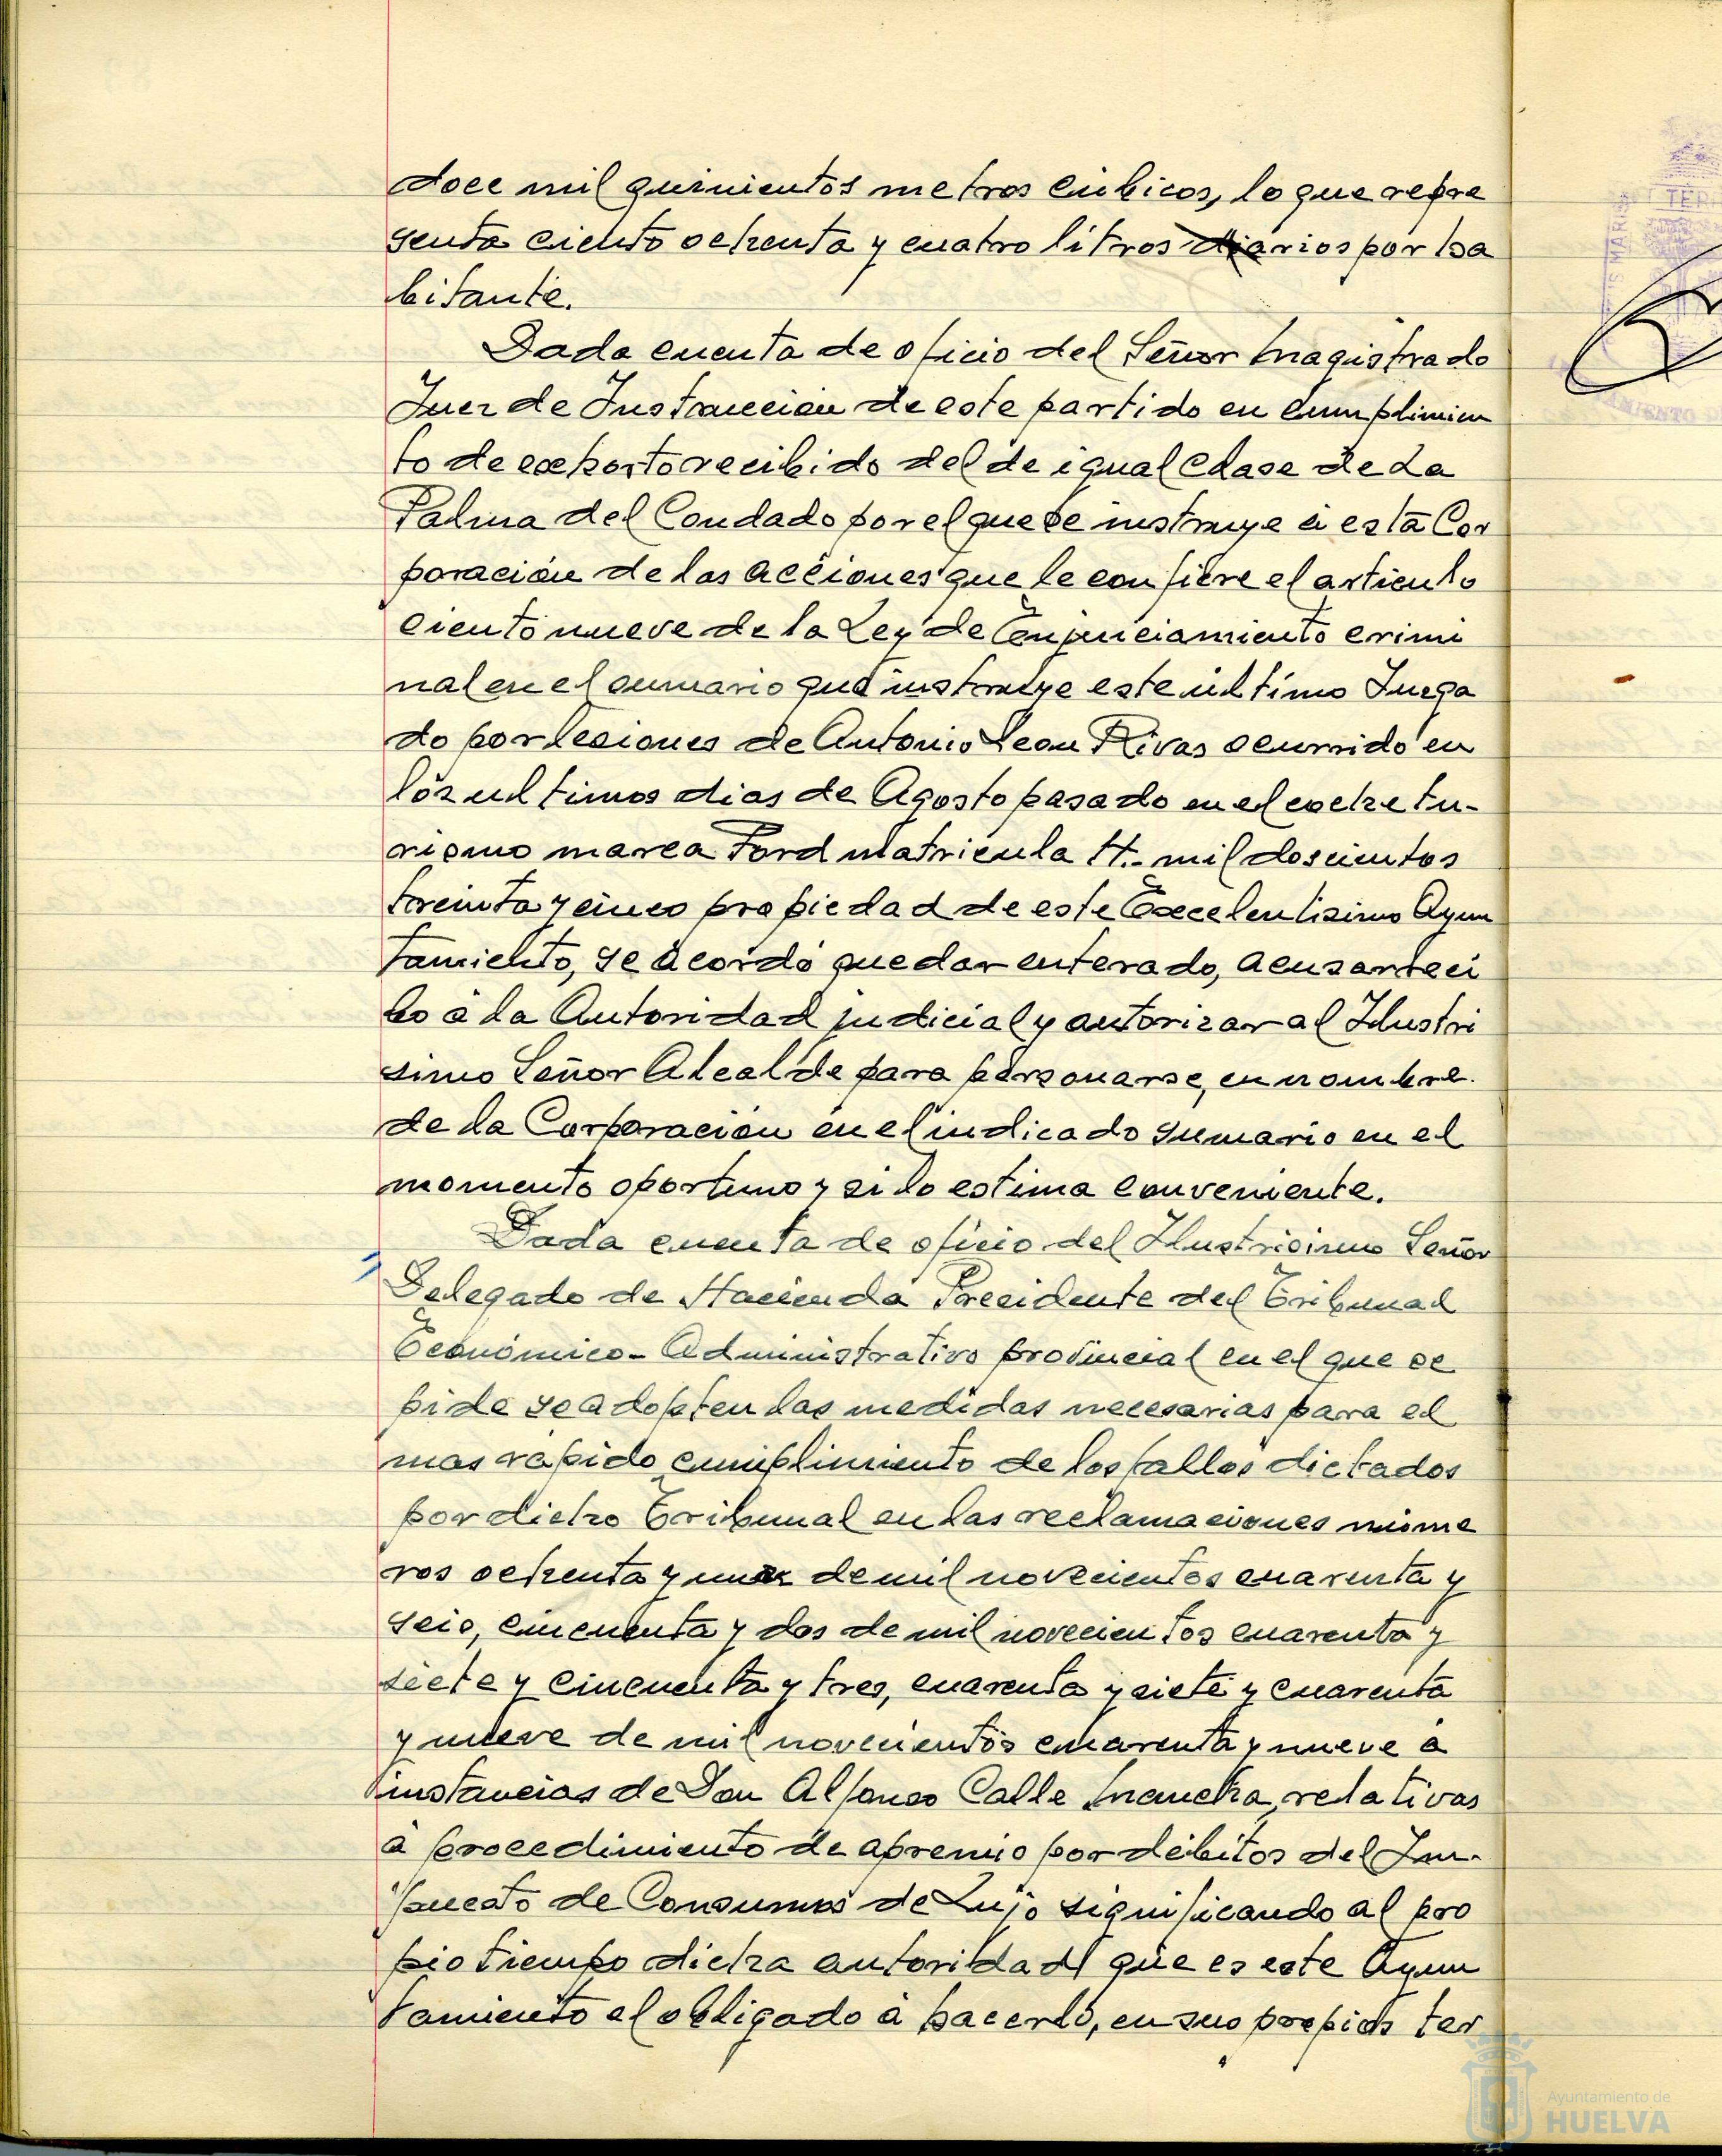 doce mil quinientos metros cúbicos, lo que repre
senta ciento ochenta y cuatro litros diarios por ha
bitante.
Dada cuenta de oficio del Señor Magistrado
Juez de Instrucción de este partido en cumplimien
to de exhorto recibido del de igual clase de La
Palma del Condado por el que se instruye a esta Cor
poración de las acciones que le confiere el artículo
ciento nueve de la Ley de Enjuiciamiento crimi
nal en el sumario que instruye este último Juzga
do por lesiones de Antonio Leon Rivas ocurrido en
los ultimos dias de Agosto pasado en el coche tu-
rismo marca Ford matricula H.- mil doscientos
treinta y cinco propiedad de este Excelentisimo Ayun
tamiento, se acordó quedar enterado, acusar reci
bo á la Autoridad judicial y autorizar al Ilustri
simo Señor Alcalde para personarse, en nombre
de la Corporación en el indicado sumario en el
momento oportuno y si lo estima conveniente.
Dada cuenta de oficio del Ilustrisimo Señor
Delegado de Hacienda Presidente del Tribunal
Económico-Administrativo provincial en el que se
pide se adopten las medidas necesarias para el
mas rápido cumplimiento de los fallos dictados
por dicho Tribunal en las reclamaciones núme
ros ochenta y una de mil novecientos cuarenta y
seis, cincuenta y dos de mil novecientos cuarenta y
siete y cincuenta y tres, cuarenta y siete y cuarenta
y nueve de mil novecientos cuarenta y nueve á
instancias de Don Alfonso Calle Mancha, relativas
á procedimiento de apremio por débitos del Im-
puesto de Consumos de Lujo significando al pro
pio tiempo dicha autoridad que es este Ayun
tamiento el obligado á hacerlo, en sus propios ter
Ayuntamiento de
HUELVA